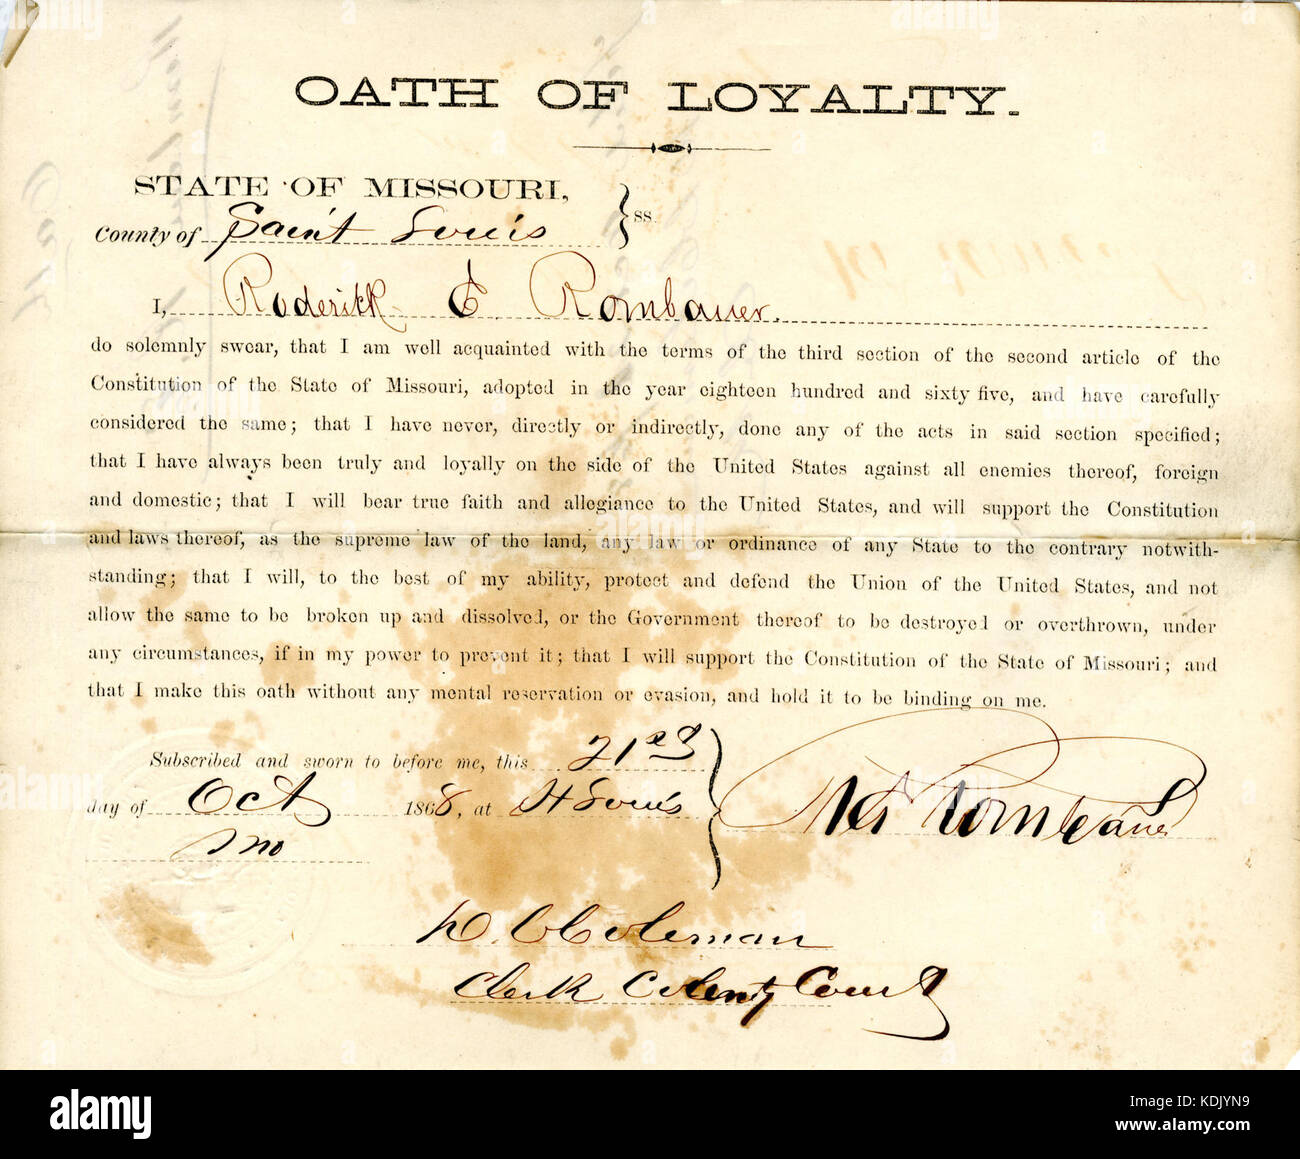 OATH OF LOYALTY.
STATE OF MISSOURI,
County of Saint Louis } ss.
I, Roderick E. Rombauer.
do solemnly swear, that I am well acquainted with the terms of the third section of the second article of the
Constitution of the State of Missouri, adopted in the year eighteen hundred and sixty five, and have carefully
considered the same; that I have never, directly or indirectly, done any of the acts in said section specified;
that I have always been truly and loyally on the side of the United States against all enemies thereof, foreign
and domestic; that I will bear true faith and allegiance to the United States, and will support the Constitution
and laws thereof, as the supreme law of the land, any law or ordinance of any State to the contrary notwith-
standing; that I will, to the best of my ability, protect and defend the Union of the United States, and not
allow the same to be broken up and dissolved, or the Government thereof to be destroyed or overthrown, under
any circumstances, if in my power to prevent it; that I will support the Constitution of the State of Missouri; and
that I make this oath without any mental reservation or evasion, and hold it to be binding on me.
Subscribed and sworn to before me, this 21st
day of Oct 1868, at St Louis
Mo
Rombauer
Coleman
Clerk County Court
alamy
Image ID: KDJYN9
www.alamy.com